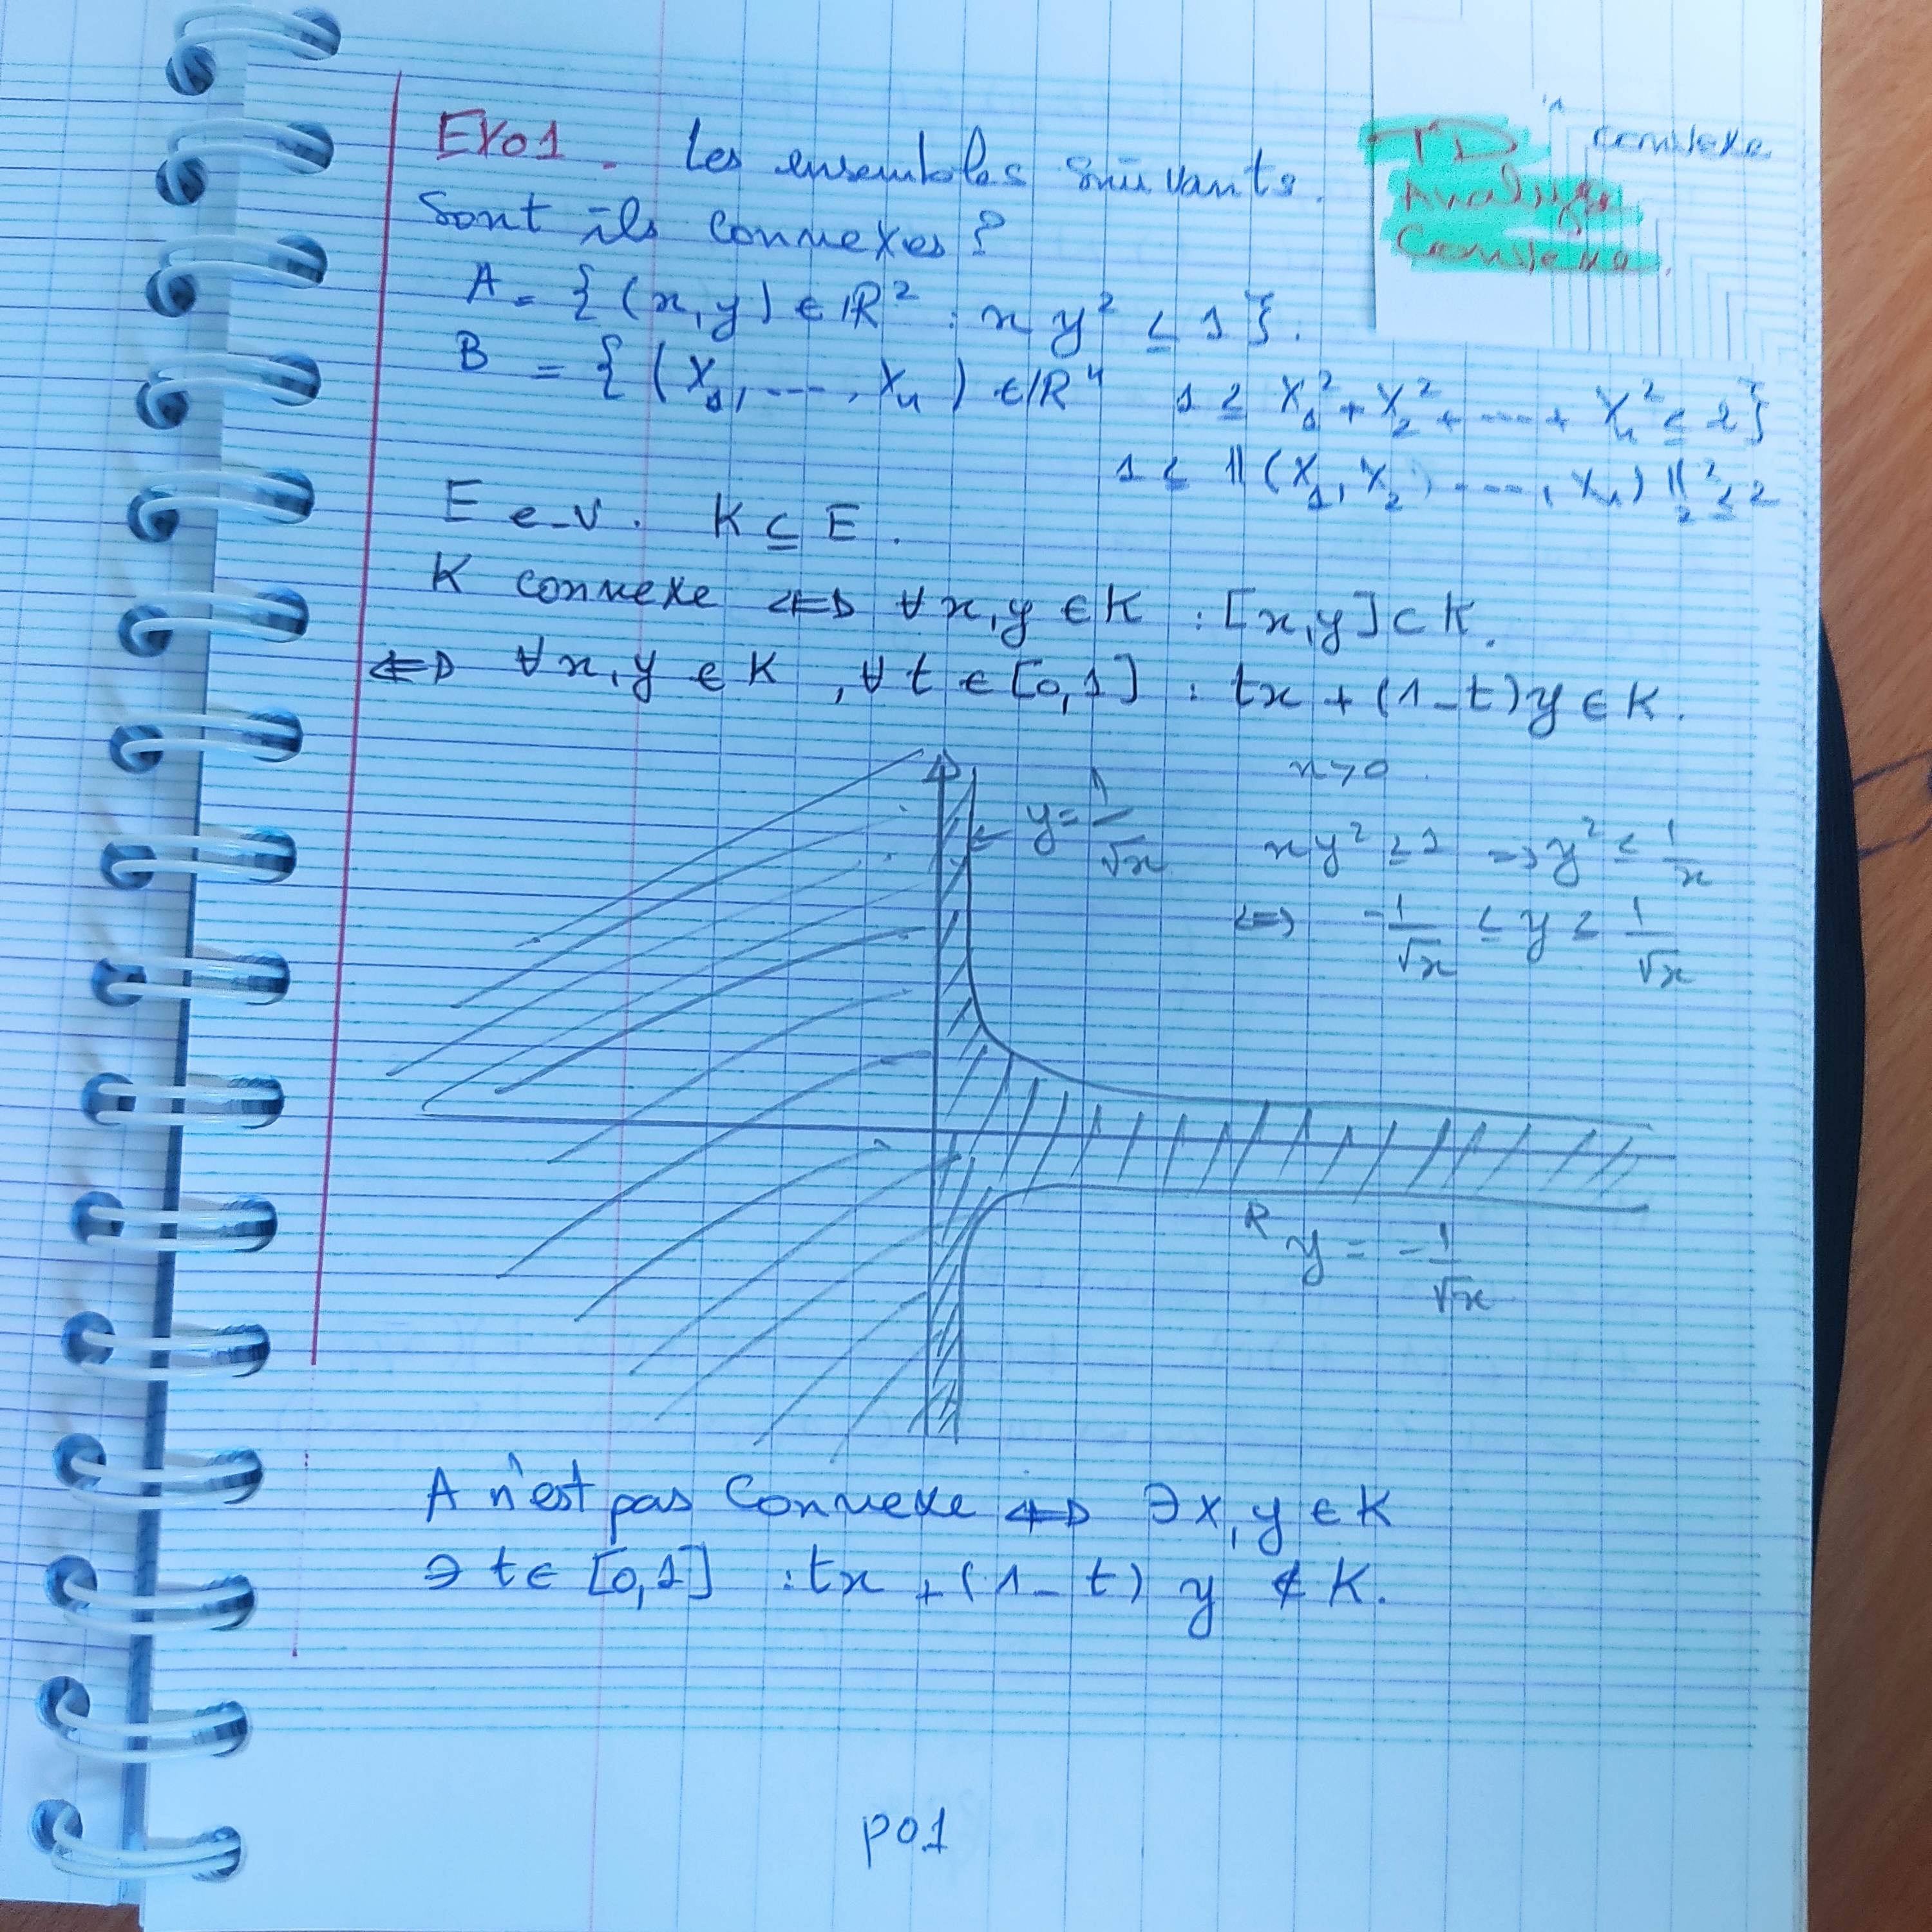 EXO1. Les ensembles suivants.
Sont ils connexes ?
TD
Analyse
Convexe.
convexe
A = { (x,y) ∈ ℝ² : x y² ≤ 1 }.
B = { (X₁, ---- , X₄) ∈ ℝ⁴ 1 ≤ X₁² + X₂² + ---- + X₄² ≤ 2 }
1 ≤ ‖(X₁, X₂, ----, X₄)‖₂² ≤ 2
E e.v. K ⊆ E.
K connexe ⇔ ∀x,y ∈ K : [x,y] ⊂ K.
⇔ ∀x,y ∈ K , ∀t ∈ [0,1] : tx + (1-t)y ∈ K.
x > 0
y = 1/√x
x y² ≤ 1 ⇒ y² ≤ 1/x
⇔ -1/√x ≤ y ≤ 1/√x
y = -1/√x
A n'est pas Connexe ⇔ ∃x,y ∈ K
∃ t ∈ [0,1] : tx + (1-t) y ∉ K.
p01